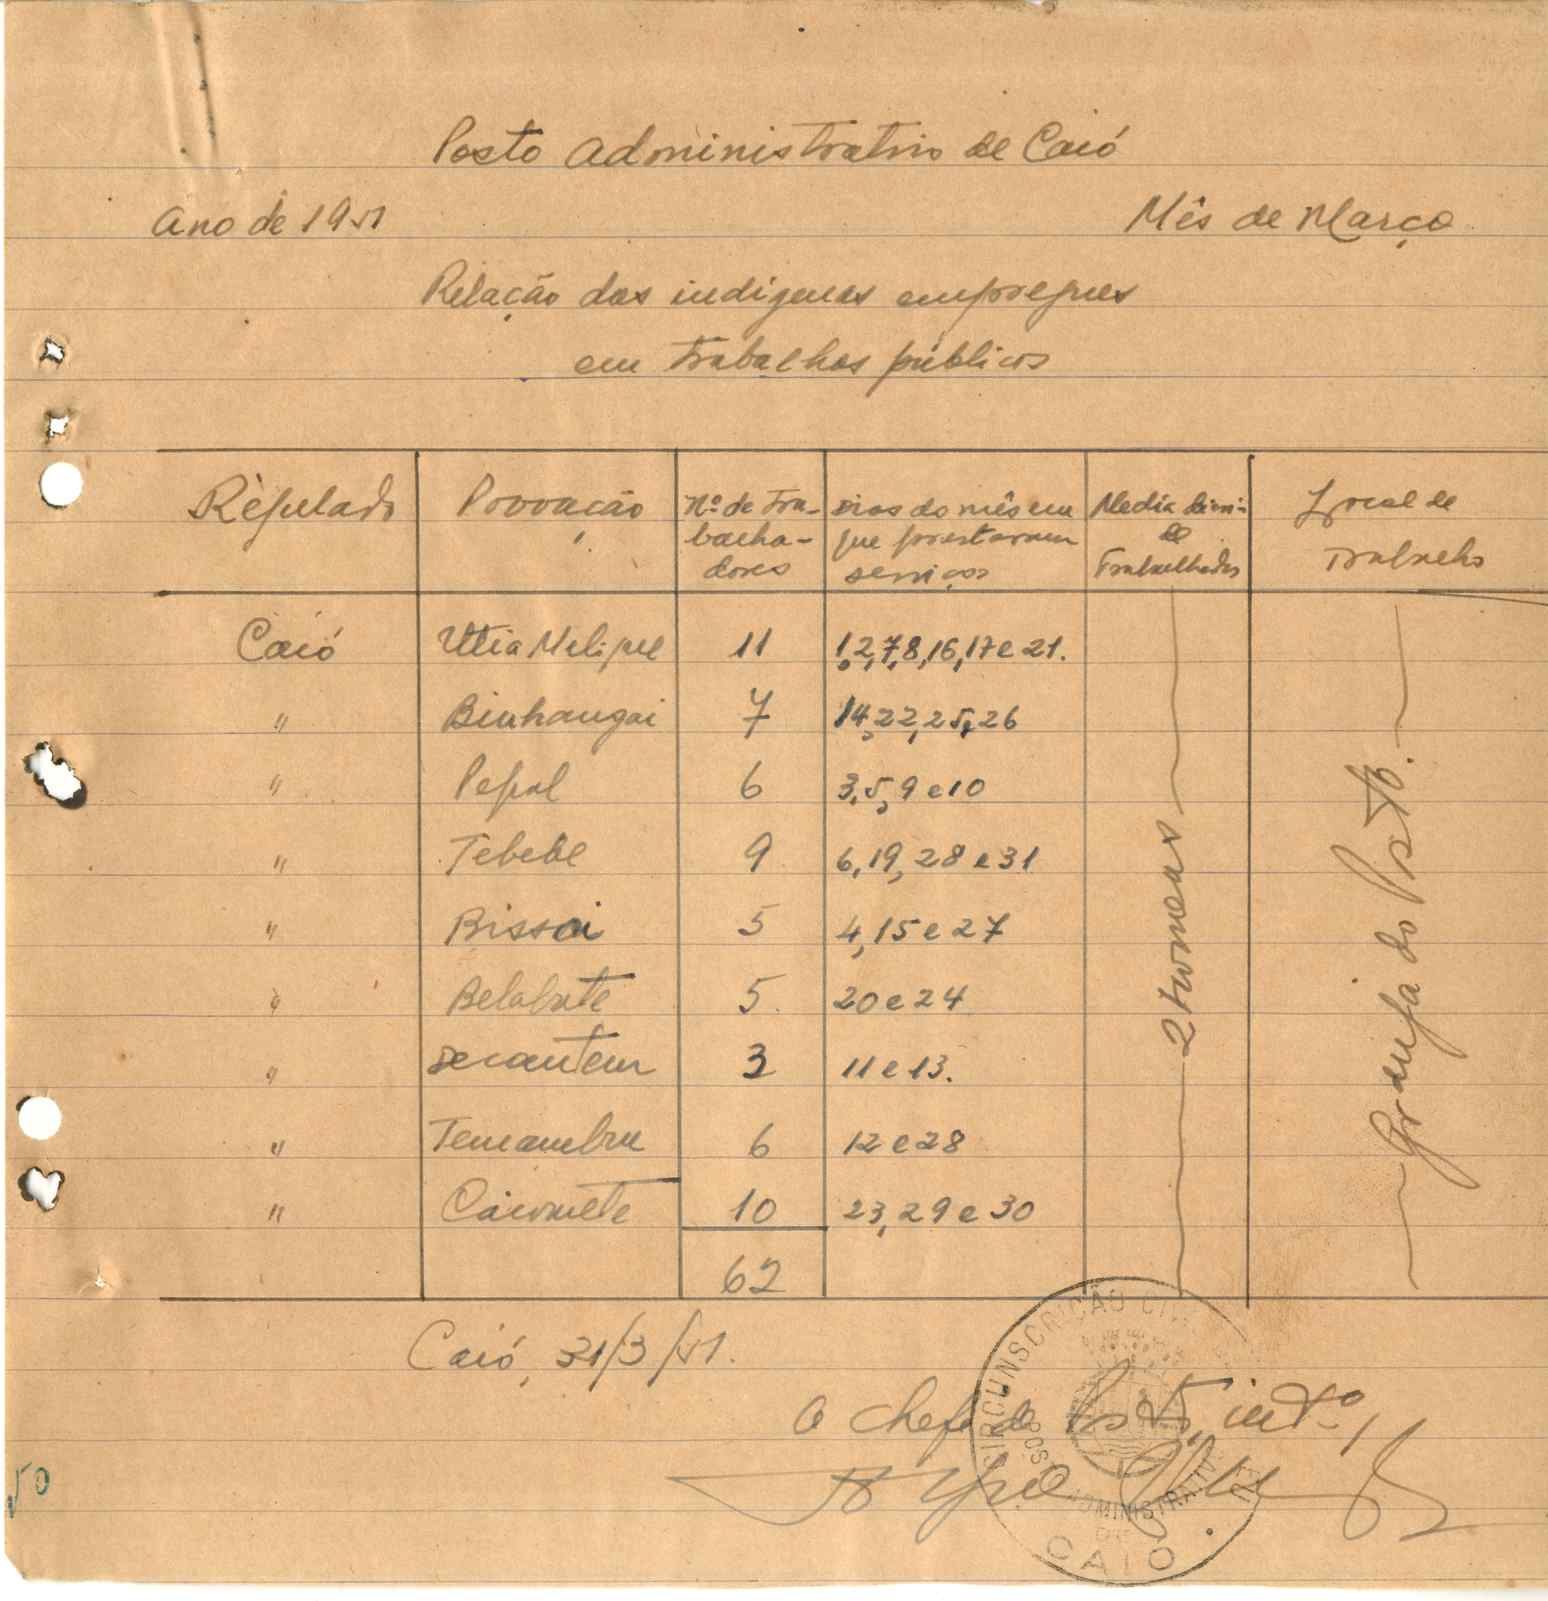 Posto Administrativo de Caió
Ano de 1951
Mês de Março
Relação dos indígenas empregues
em trabalhos públicos
Regulado
Povoação
Nº de Tra-
balha-
dores
Dias do mês em
que prestaram
serviços
Media diári-
de
Trabalhados
Local de
Trabalho
Caió Utia Melique 11 1,2,7,8,16,17 e 21.
" Binhangai 7 14,22,25,26
" Pepal 6 3,5,9 e 10
" Tebebe 9 6,19,28 e 31
" Bissoi 5 4,15 e 27
" Belabate 5 20 e 24
" 3 11 e 13.
" 6 12 e 28
" Caiomete 10 23,29 e 30
62
Granja do Posto.
Caió, 31/3/51.
O Chefe do Posto, intº,
CIRCUNSCRIÇÃO CIVIL
POSTO ADMINISTRATIVO
DE
CAIÓ
50